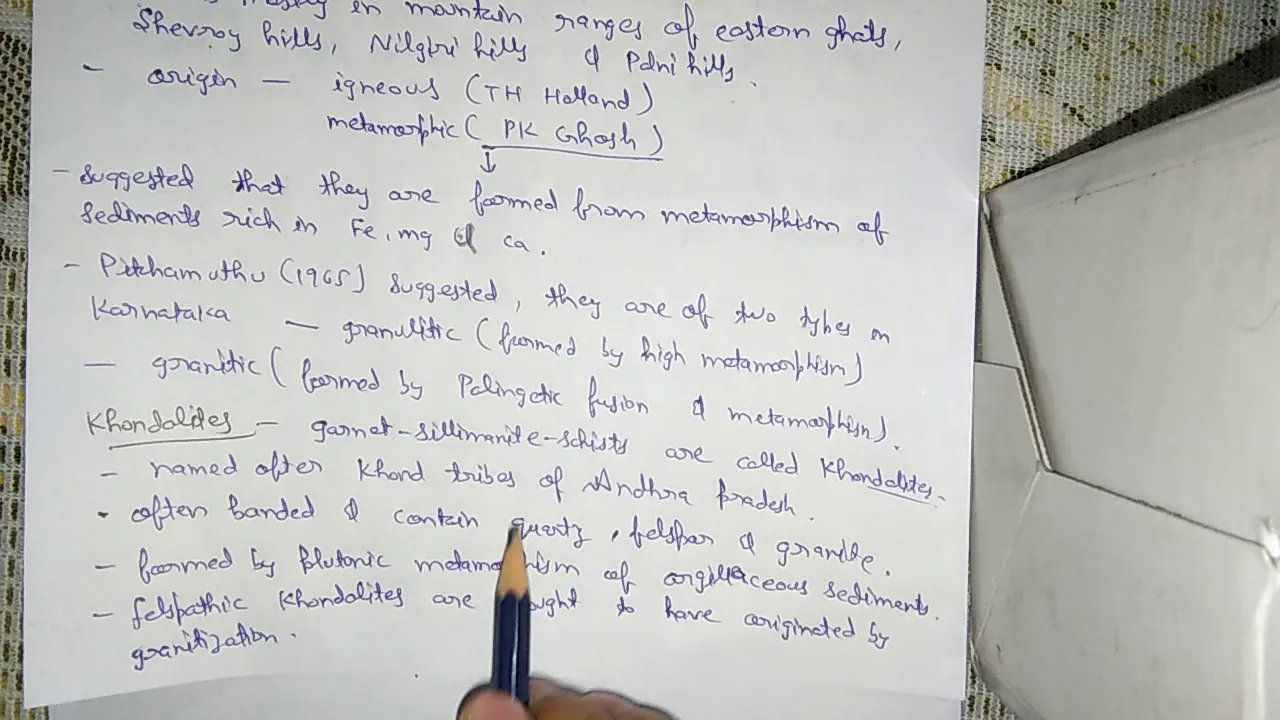 in mountain ranges of eastern ghats,
Shevroy hills, Nilgiri hills & Palni hills.
- origin — igneous (TH Holland)
metamorphic (PK Ghosh)
↓
- Suggested that they are formed from metamorphism of
sediments rich in Fe, mg & ca.
- Pitchamuthu (1965) suggested, they are of two types in
Karnataka — granulitic (formed by high metamorphism)
— granitic (formed by Palingetic fusion & metamorphism).
Khondalites — garnet-sillimanite-schists are called Khondalites.
- named after Khond tribes of Andhra pradesh.
- often banded & contain quartz, felspar & granite.
- formed by plutonic metamorphism of argillaceous sediments.
- felspathic Khondalites are to have originated by
granitization.